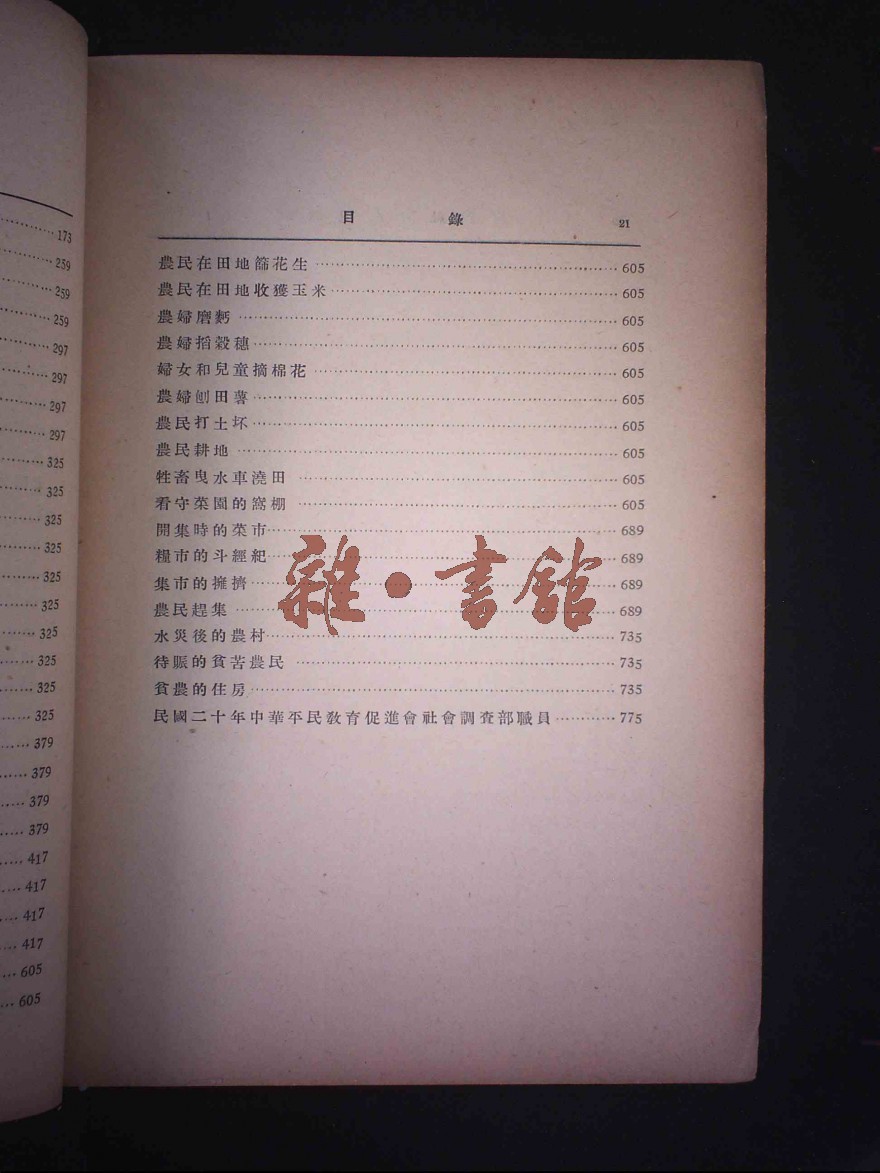 173
259
259
259
297
297
297
297
325
325
325
325
325
325
325
325
325
325
379
379
379
379
417
417
417
417
605
605
目 錄 21
農民在田地篩花生 605
農民在田地收獲玉米 605
農婦磨麪 605
農婦搯穀穗 605
婦女和兒童摘棉花 605
農婦刨田薯 605
農民打土坏 605
農民耕地 605
牲畜曳水車澆田 605
看守菜園的窩棚 605
開集時的菜市 689
糧市的斗經紀 689
集市的擁擠 689
農民趕集 689
水災後的農村 735
待賑的貧苦農民 735
貧農的住房 735
民國二十年中華平民敎育促進會社會調查部職員 775
雜·書館